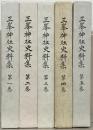 三峯神社史料集 第一巻
三峯神社史料集 第二巻
三峯神社史料集 第三巻
三峯神社史料集 第四巻
三峯神社史料集